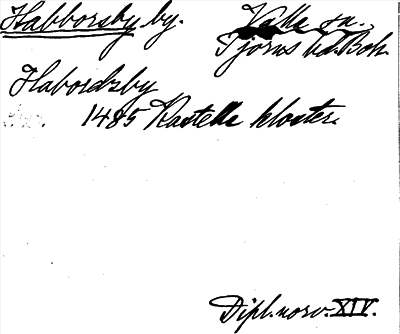 Habborsby by. Valla sn.,
Tjörns hd. Boh.
Habordzby
1485 Kastelle kloster.
Dipl. norv. XIV.